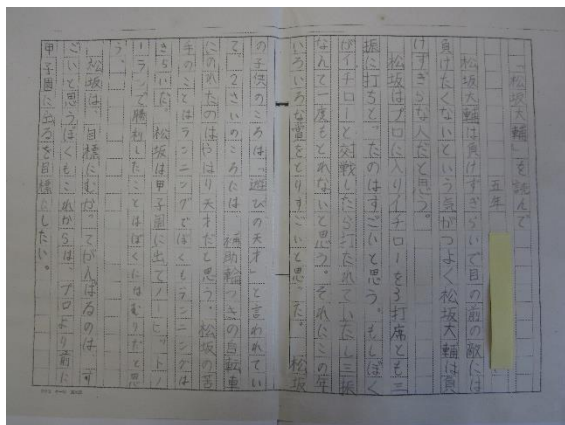 「松坂大輔」を読んで
五年
松坂大輔は負けずぎらいで目の前の敵には
負けたくないという気がつよく松坂大輔は負
けずぎらな人だと思う。
松坂はプロに入りイチローを3打席とも三
振に打ちとったのはすごいと思う。もしぼく
がイチローと対戦したら打たれていたし三振
なんて一度もとれないと思う。それにこの年
いろいろな賞をとりすごいと思った。松坂
の子供のころは「遊びの天才」と言われてい
て、2さいのころには、補助輪つきの自転車
にのれたのはやはり天才だと思う。松坂の苦
手のことはランニングでぼくもランニングは
きらいだ。松坂は甲子園に出てノーヒットノ
ーランで勝利したことはぼくにはむりだと思
う。
松坂は、目標にむかってがんばるのは、す
ごいと思うぼくもこれからは、プロより前に
甲子園に出るを目標にしたい。